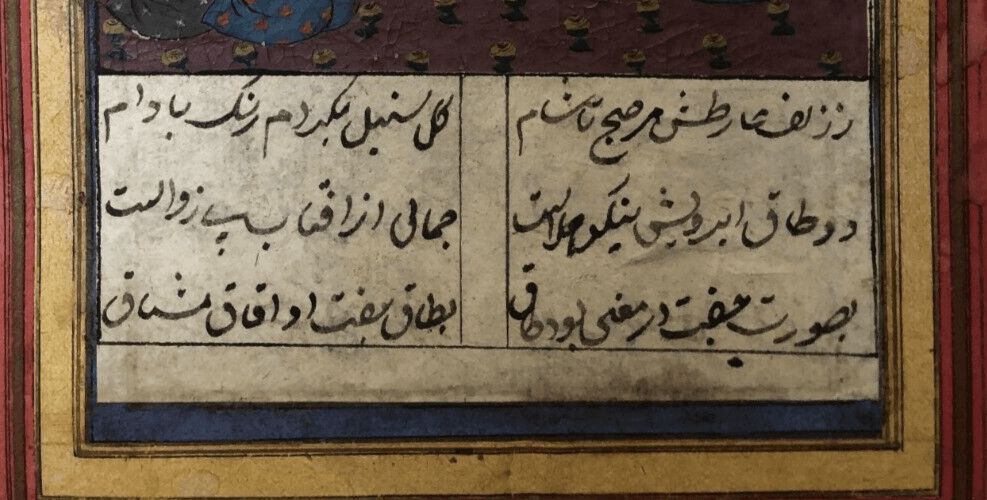 ز زلف عارضش هر صبح تا شام کل سنبل رنک با دام
دو طاق ابرویش نیکو هلالست جمالی از افتاب بی زوالست
بصورت جفت در معنی بود طاق بطاق جفت او افاق مشتاق